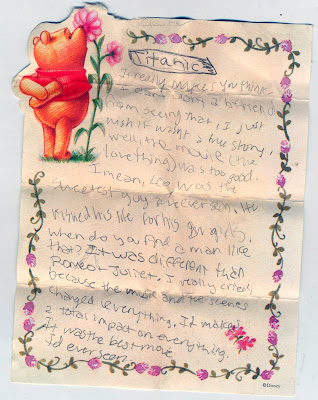 Titanic
It really makes you think
I can't a bfriend
from seeing that, I just
wish it wasn't a true story,
well, the movie (the
lovething) was too good.
I mean, Leo was the
sweetest guy I ever seen. He
risked his life for his gurl
when do you find a man like
that? It was different than
Romeo + Juliet. I really cried,
because the music and the scenes
changed everything. It makes
a total impact on everything.
It was the best movie
I'd ever seen.
©Disney